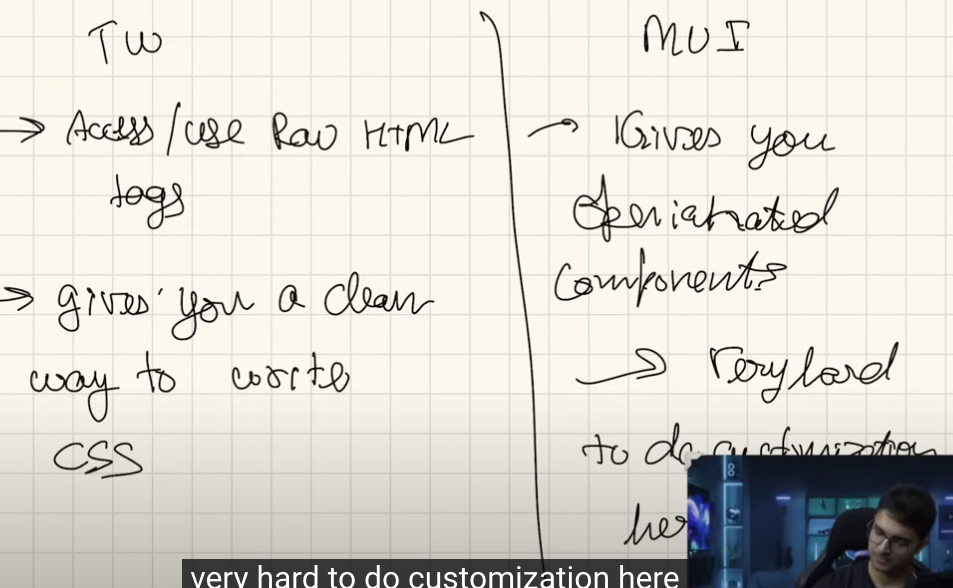 TW
→ Access/use Raw HTML
tags
→ gives you a clean
way to write
CSS
MUI
→ Gives you
Openianated
Components
→ Very hard
to do customization
here
very hard to do customization here